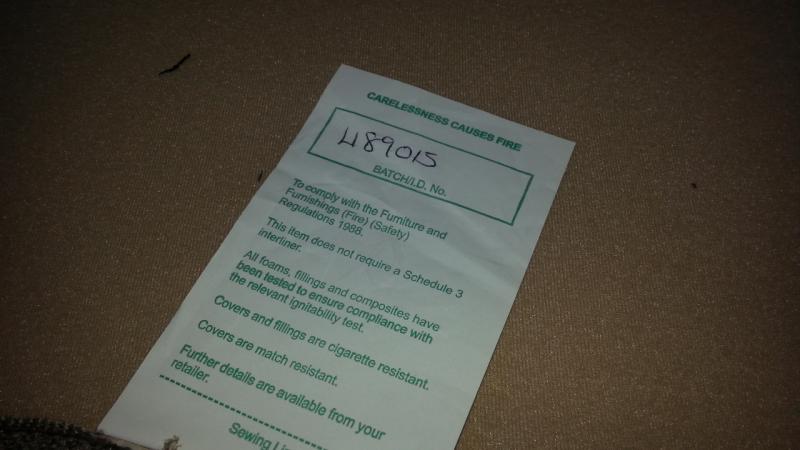 CARELESSNESS CAUSES FIRE
489015
BATCH/I.D. No.
To comply with the Furniture and
Furnishings (Fire) (Safety)
Regulations 1988.
This item does not require a Schedule 3
interliner.
All foams, fillings and composites have
been tested to ensure compliance with
the relevant ignitability test.
Covers and fillings are cigarette resistant.
Covers are match resistant.
Further details are available from your
retailer.
Sewing